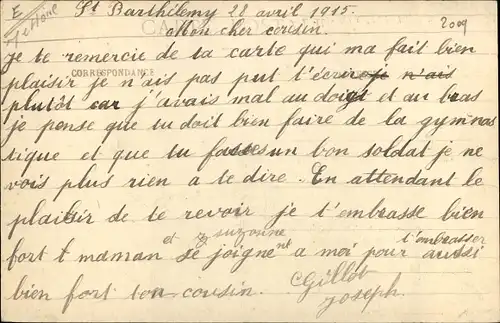 E
St Barthélemy 28 avril 1915.
2009
Mon cher cousin.
je te remercie de ta carte qui ma fait bien
plaisir je n'ais pas put t'écrire je n'ais
CORRESPONDANCE
plutôt car j'avais mal au doigt et au bras
je pense que tu doit bien faire de la gymnas
tique et que tu fasses un bon soldat je ne
vois plus rien a te dire. En attendant le
plaisir de te revoir je t'embrasse bien
fort t maman et suzanne se joigne nt a moi pour t'embrasser aussi
bien fort ton cousin.
Gillot
Joseph.